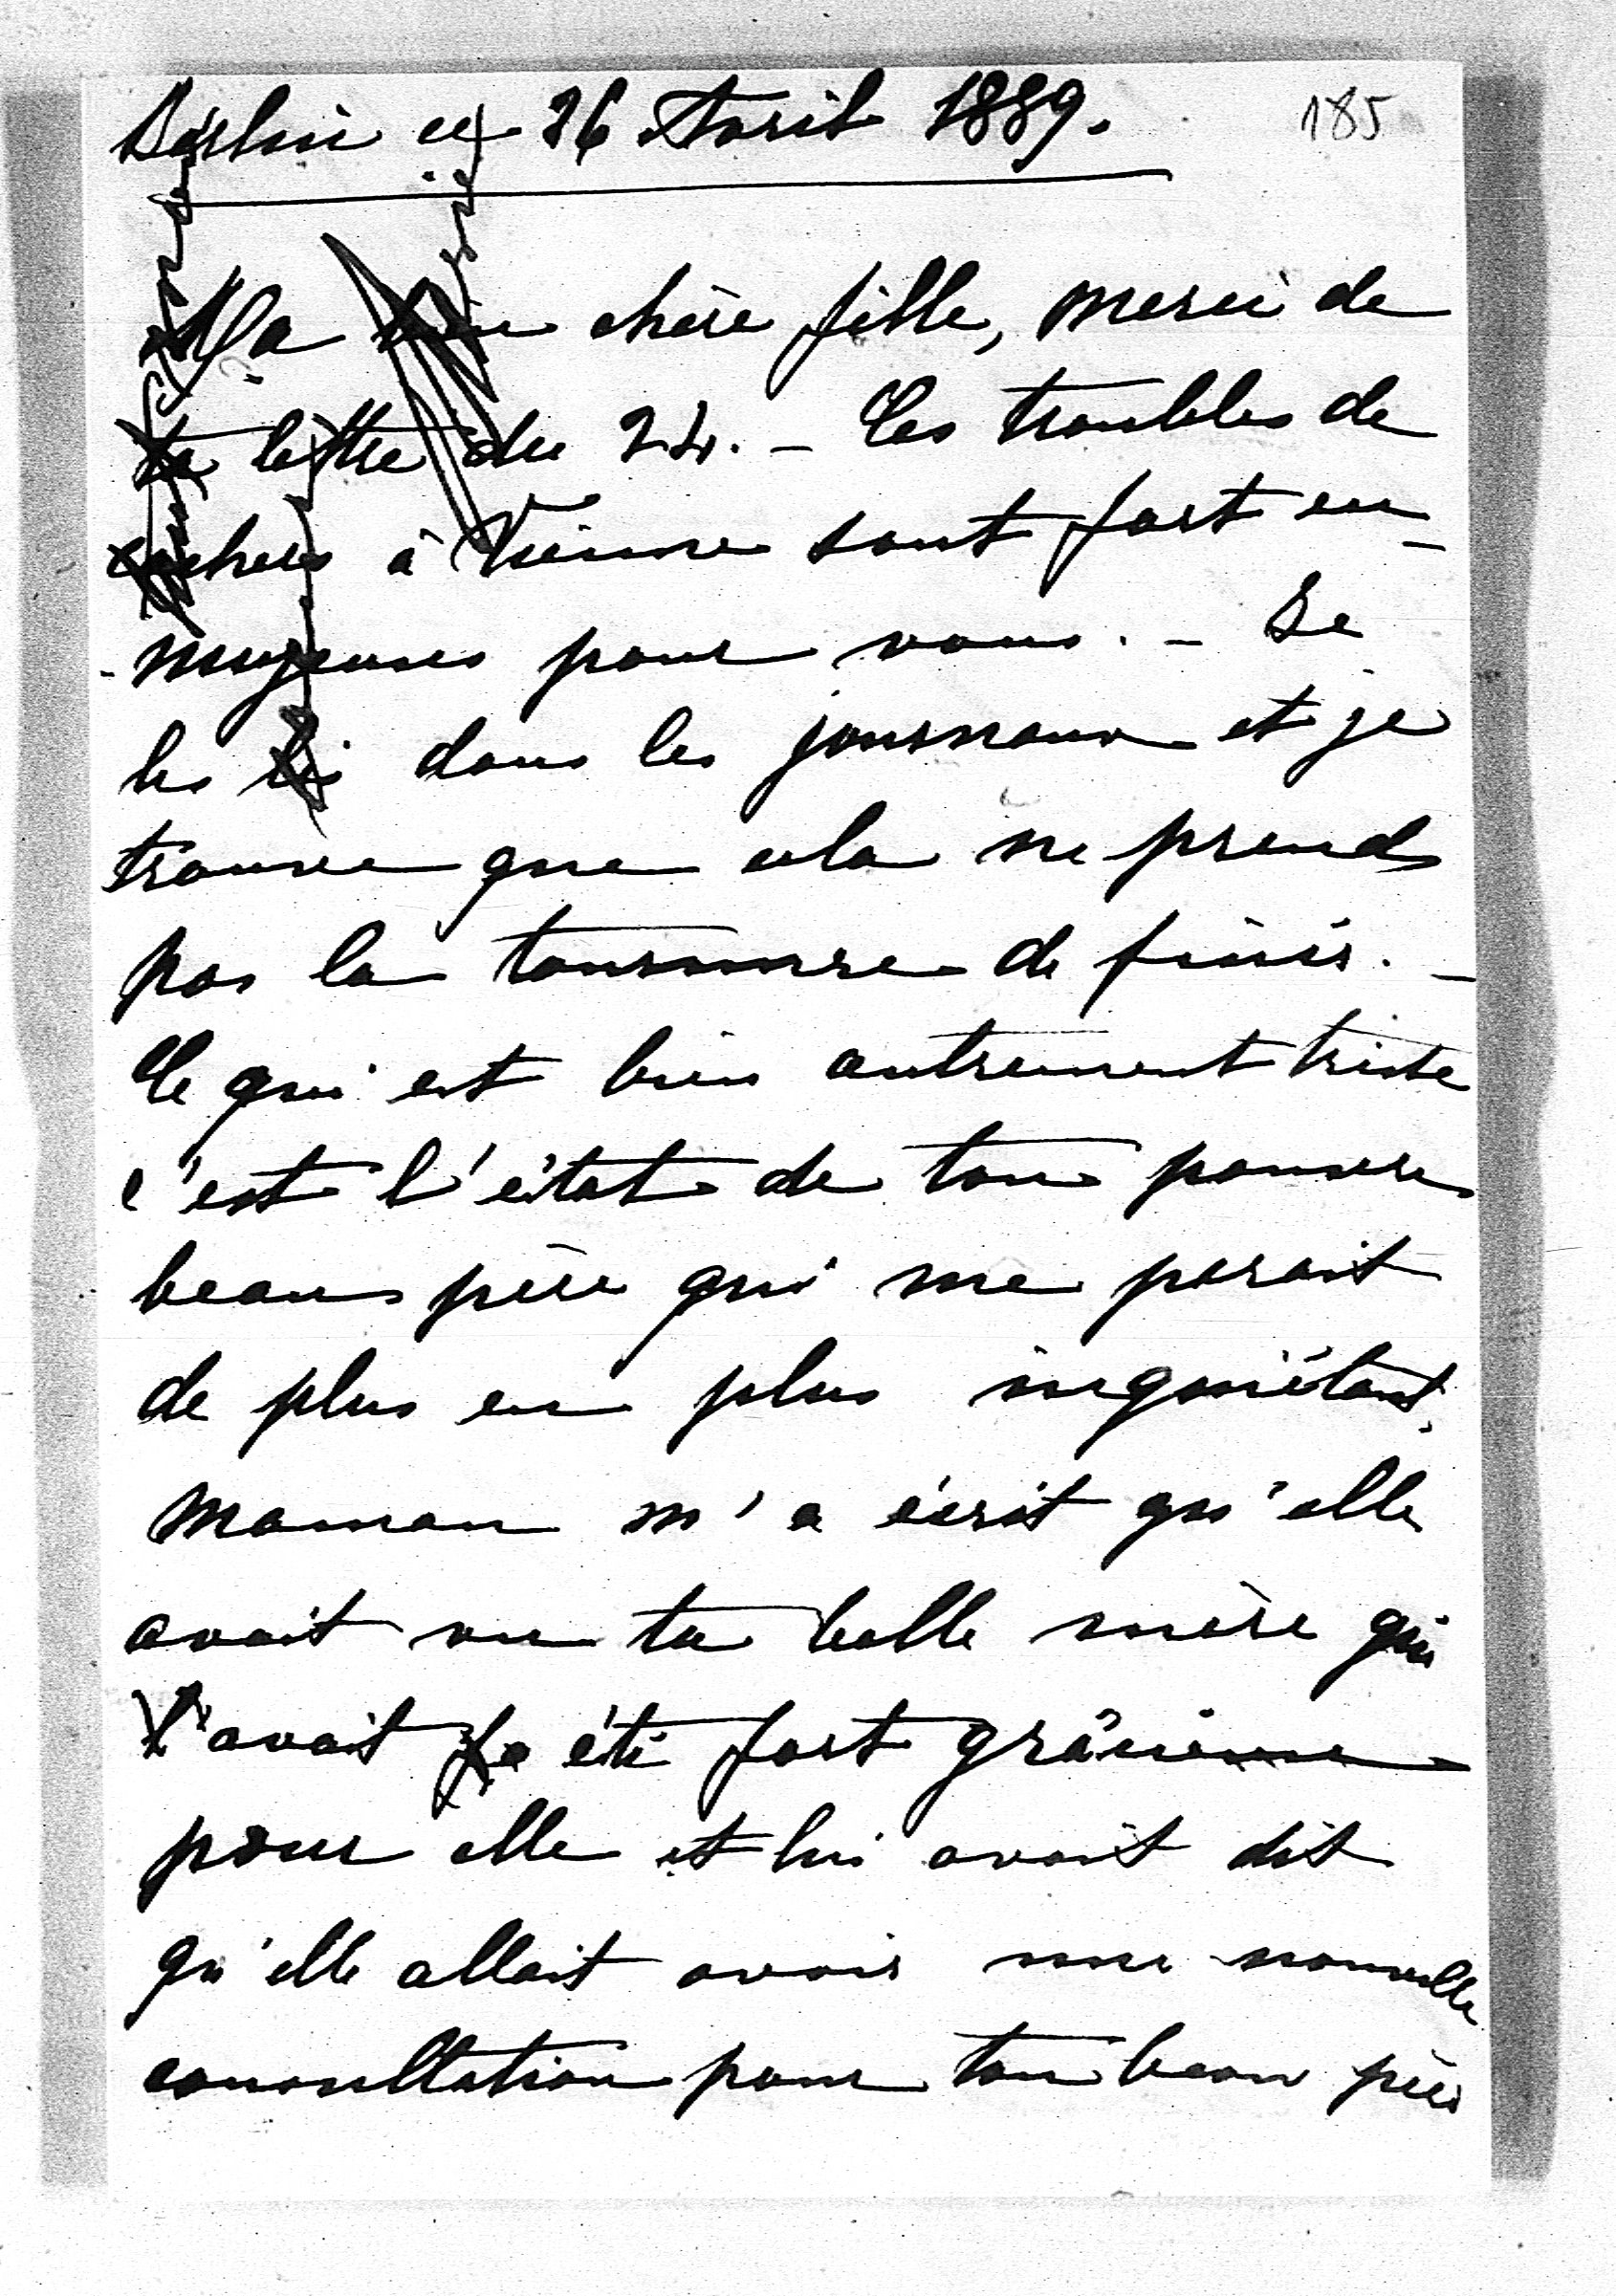 Berlin ce 26 Avril 1889.
185
Ma chère fille, merci de
ta lettre du 24. - Les troubles de
cochers à Vienne sont fort en-
-nuyeuses pour vous. - Je
les lis dans les journaux et je
trouve que cela ne prend
pas la tournure de finir. -
Ce qui est bien autrement triste
c'est l'état de ton pauvre
beau père qui me parait
de plus en plus inquiétant.
Maman m'a écrit qu'elle
avait vu ta belle mère qui
l'avait été fort grâcieuse
pour elle et lui avait dit
qu'elle allait avoir une nouvelle
consultation pour ton beau père